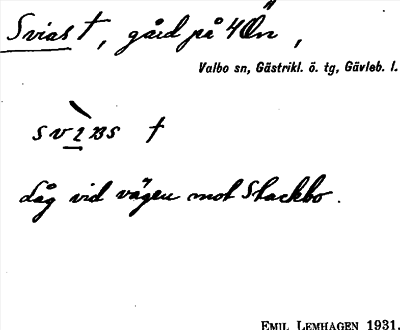 Svias †, gård på 4 Ön,
Valbo sn, Gästrikl. ö. tg, Gävleb. l.
Låg vid vägen mot Stackbo.
EMIL LEMHAGEN 1931.